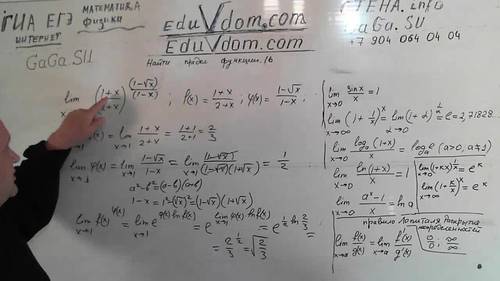 ГИА ЕГЭ МАТЕМАТИКА
физика
ИНТЕРНЕТ
GaGa.SU
EduVdom.com
EduVdom.com
Найти предел функции.
GaGa.SU
+7 904 064 04 04
lim ((1+x)/(2+x))^((1-√x)/(1-x)) ; f(x) = (1+x)/(2+x) ; φ(x) = (1-√x)/(1-x)
= lim x→1 (1+x)/(2+x) = (1+1)/(2+1) = 2/3
lim x→1 φ(x) = lim x→1 (1-√x)/(1-x) = lim x→1 (1-√x)/((1-√x)(1+√x)) = 1/2
a²-b²=(a-b)(a+b)
1-x=1²-(√x)²=(1-√x)(1+√x)
lim x→1 f(x)^φ(x) = lim x→1 e^(φ(x) ln f(x)) = e^(lim x→1 φ(x) ln f(x)) = e^(1/2 ln 2/3) =
= (2/3)^(1/2) = √(2/3)
lim x→0 sinx/x = 1
lim x→∞ (1+1/x)^x = lim α→0 (1+α)^(1/α) = e = 2,71828
lim x→0 log_a(1+x)/x = log_a e (a>0, a≠1)
lim x→0 ln(1+x)/x = 1
lim x→0 (1+kx)^(1/x) = e^k
lim x→0 (a^x-1)/x = ln a
lim x→∞ (1+k/x)^x = e^k
правило Лопиталя. Раскрытие
неопределенностей
lim x→a f(x)/g(x) = lim x→a f'(x)/g'(x) 0/0 ; ∞/∞